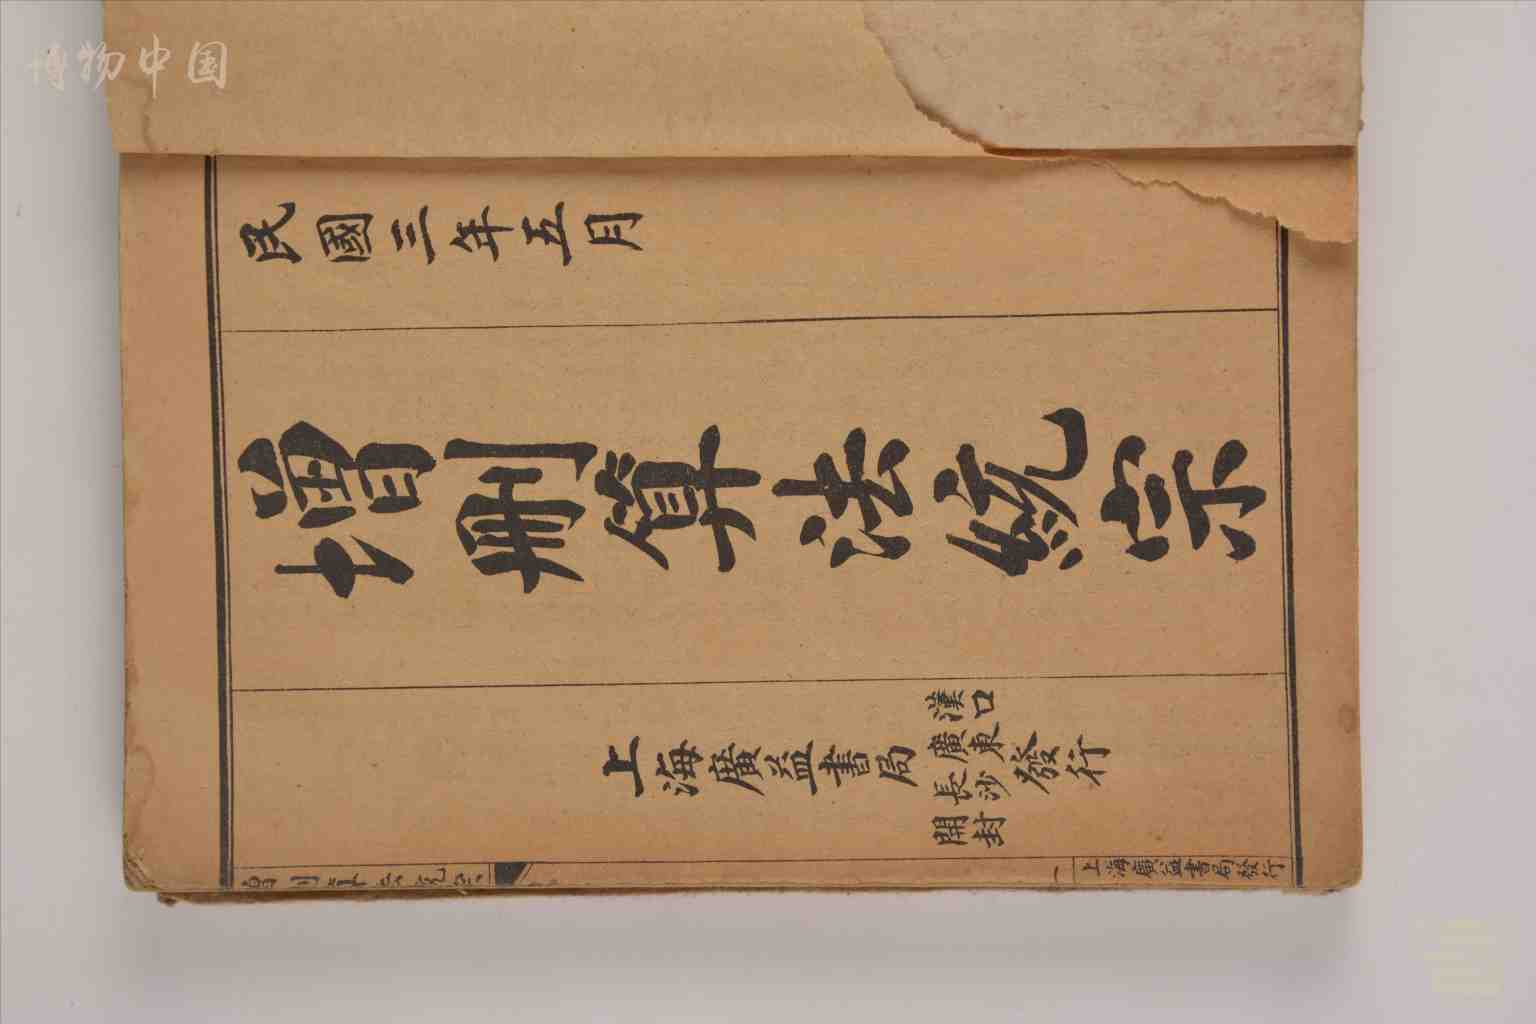 博物中国
民國三年五月
增刪算法統宗
上海廣益書局
漢口
廣東
長沙
開封
發行
增刪算法統宗
一
上海廣益書局發行